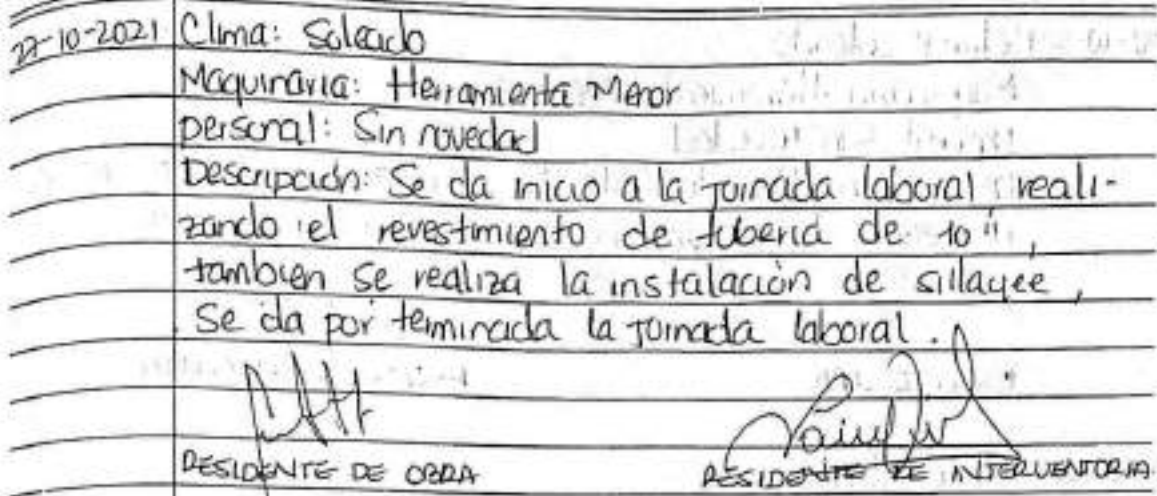 27-10-2021 Clima: Soleado
Maquinaria: Herramienta Menor
personal: Sin novedad
Descripción: Se da inicio a la jornada laboral reali-
zando el revestimiento de tuberia de 10",
tambien se realiza la instalación de sillayee,
Se da por terminada la jornada laboral.
RESIDENTE DE OBRA RESIDENTE DE INTERVENTORIA